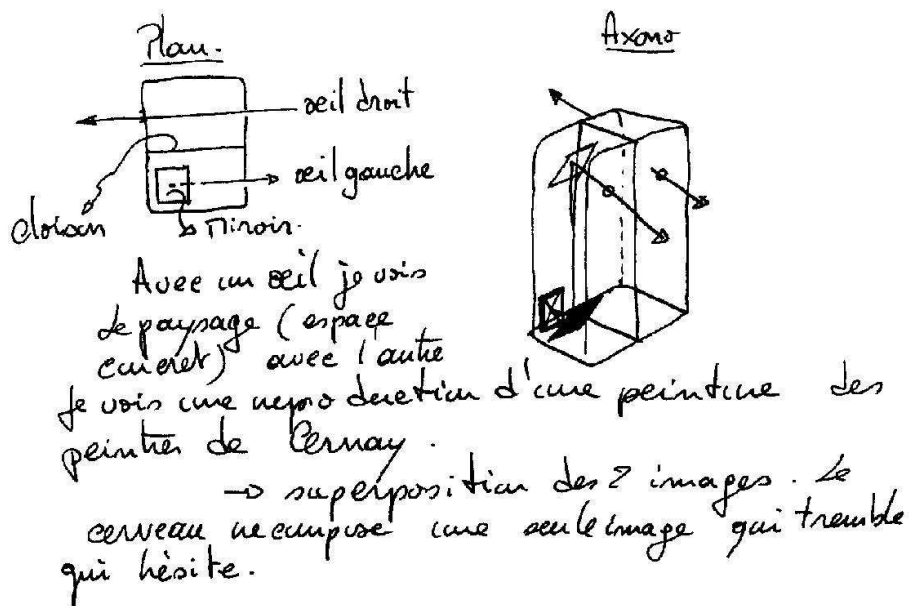 Plan.
Axono
œil droit
œil gauche
cloison
Miroir.
Avec un œil je vois
le paysage (espace
concret) avec l'autre
je vois une reproduction d'une peinture des
peintres de Cernay.
→ superposition des 2 images. Le
cerveau recompose une seule image qui tremble
qui hésite.